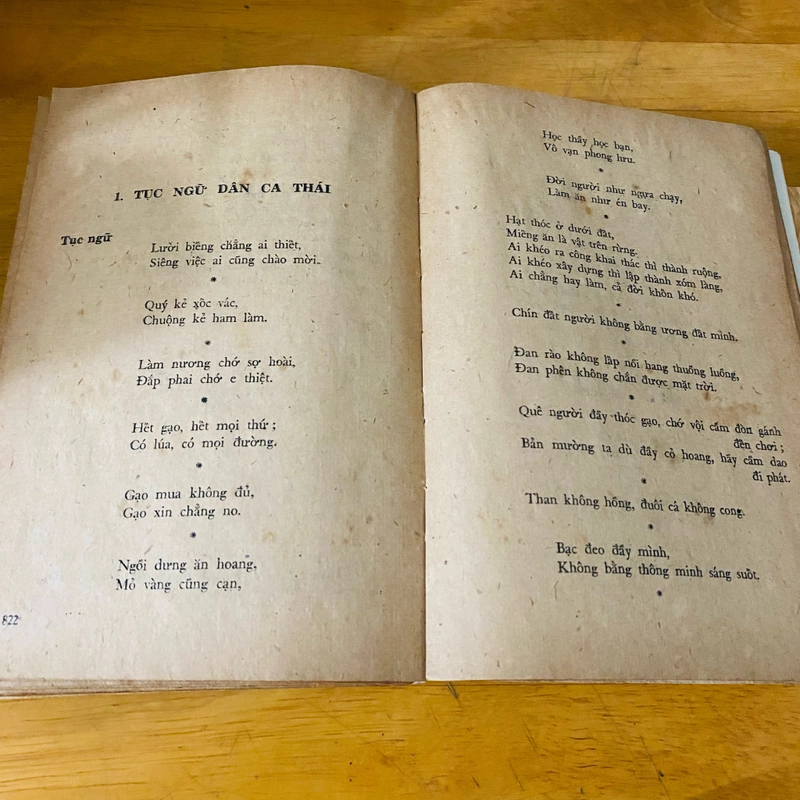 1. TỤC NGỮ DÂN CA THÁI
Tục ngữ
Lười biếng chẳng ai thiết,
Siêng việc ai cũng chào mời.
*
Quý kẻ xốc vác,
Chuộng kẻ ham làm.
*
Làm nương chớ sợ hoài,
Đắp phai chớ e thiệt.
*
Hết gạo, hết mọi thứ ;
Có lúa, có mọi đường.
*
Gạo mua không đủ,
Gạo xin chẳng no.
*
Ngồi dưng ăn hoang,
Mỏ vàng cũng cạn,
822
Học thầy học bạn,
Vô vạn phong lưu.
*
Đời người như ngựa chạy,
Làm ăn như én bay.
*
Hạt thóc ở dưới đất,
Miếng ăn là vật trên rừng.
Ai khéo ra công khai thác thì thành ruộng,
Ai khéo xây dựng thì lập thành xóm làng,
Ai chẳng hay làm, cả đời khốn khó.
*
Chín đất người không bằng ương đất mình.
*
Đan rào không lấp nổi hang thuồng luồng,
Đan phên không chắn được mặt trời.
*
Quê người đầy thóc gạo, chớ vội cầm đòn gánh
đến chơi ;
Bản mường ta dù đầy cỏ hoang, hãy cầm dao
đi phát.
*
Than không hồng, đuôi cá không cong.
*
Bạc đeo đầy mình,
Không bằng thông minh sáng suốt.
*